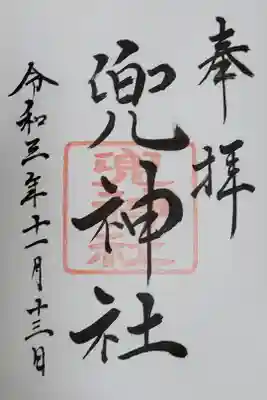 奉拝
兜神社
兜神社
令和三年十一月十三日